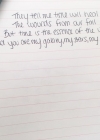 They tell me time will heal
The wounds from our fall
But time is the essence of the
you are my galaxy, my stars, my